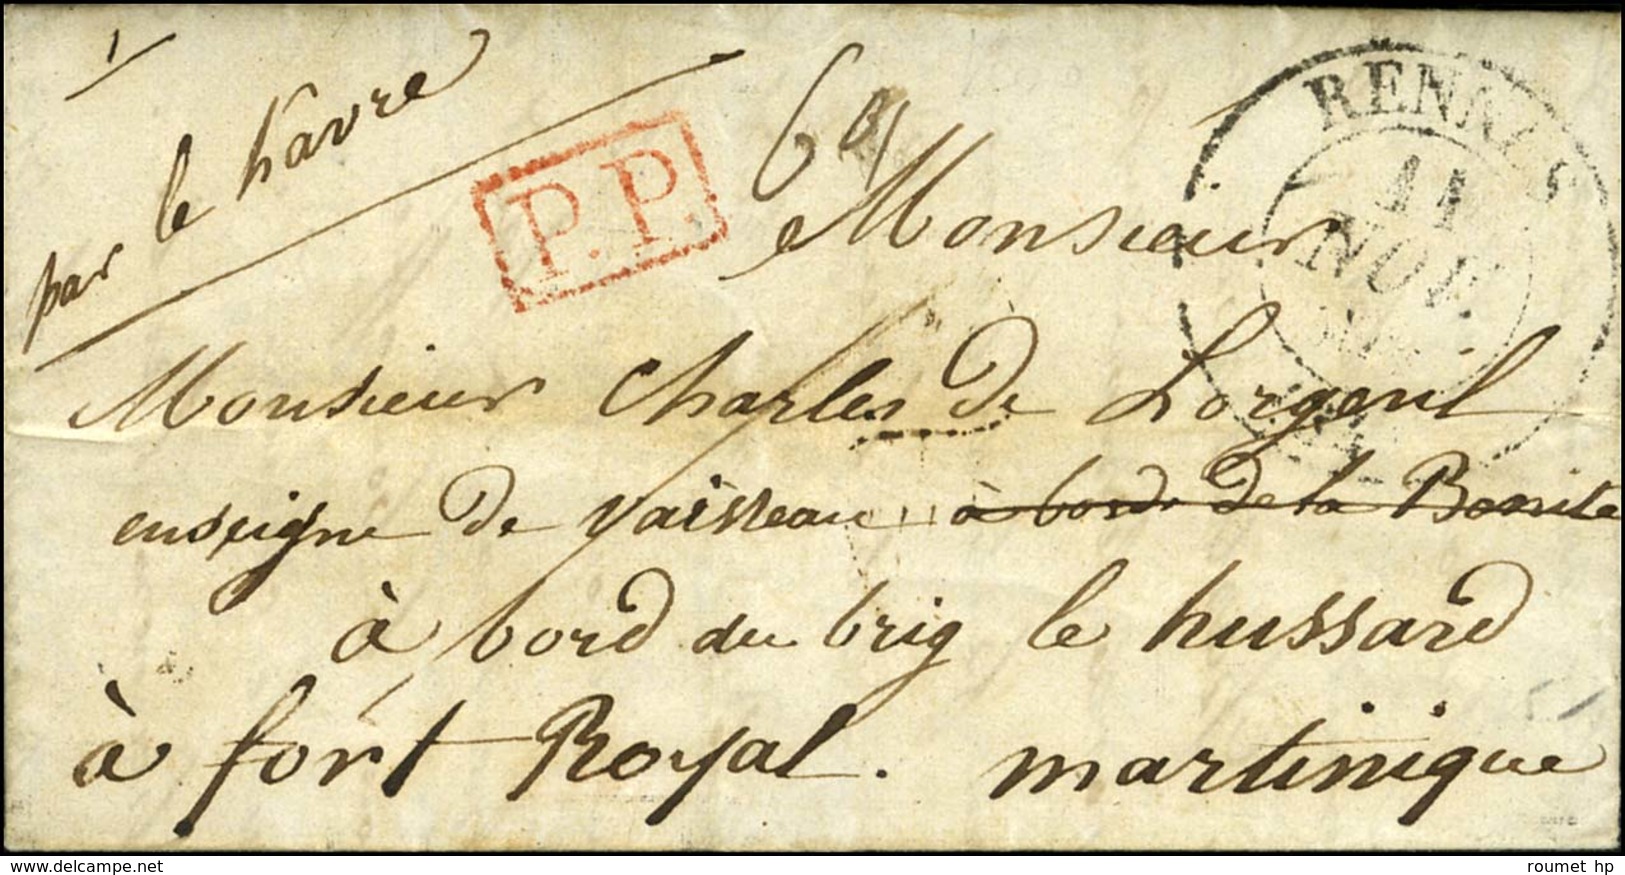 par le havre
P.P.
RENNES
11
NOV.
Monsieur
Monsieur Charles de Lorgeril
enseigne de vaisseau à bord de la Bonite
à bord du brig le hussard
à fort Royal. martinique
www.delcampe.net
roumet hp